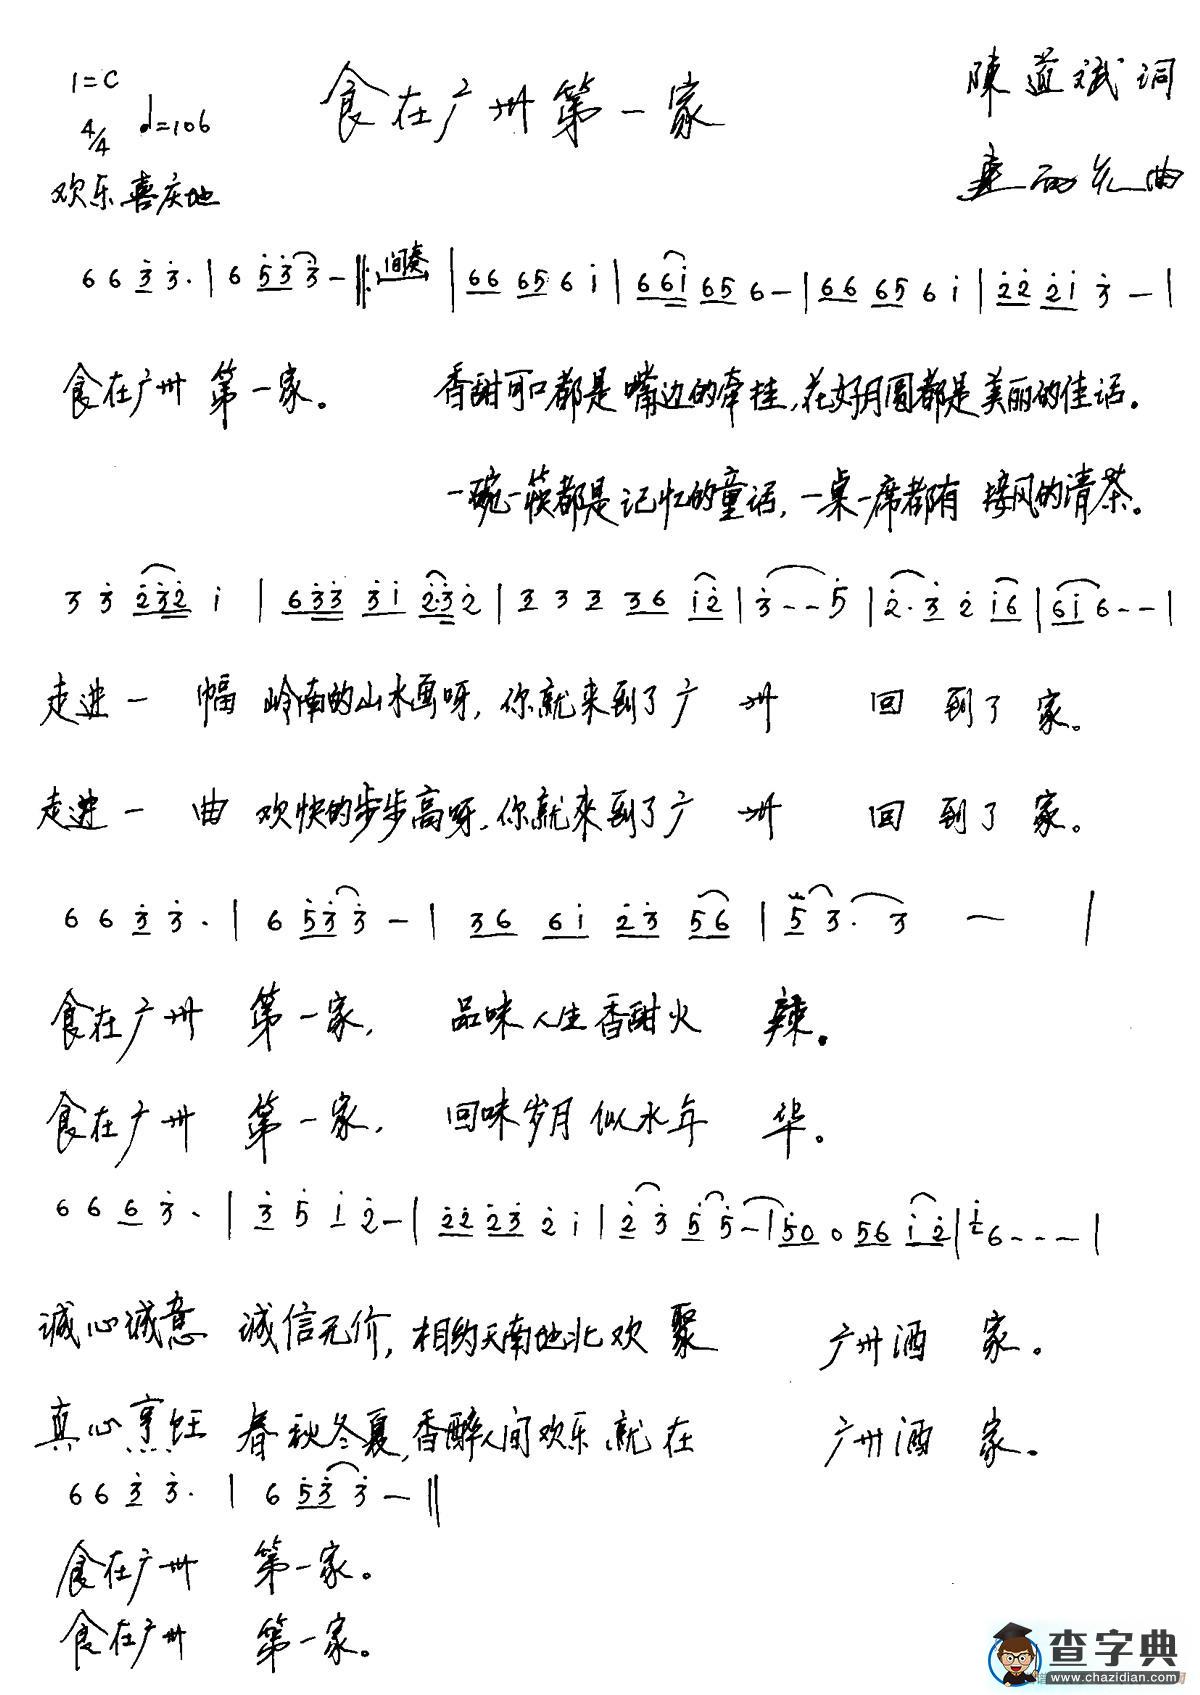 1=C
食在广州第一家
陳道斌词
4/4 d=106
曲
欢乐喜庆地
6 6 3̇ 3̇· | 6 5̇ 3̇ 3̇ – ‖: 间奏 | 66 65 6 i | 66i 65 6 – | 66 65 6 i | 2̇2̇ 2̇i 3̇ – |
食在广州 第一家。 香甜可口都是嘴边的牵挂,花好月圆都是美丽的佳话。
一碗一筷都是记忆的童话,一桌一席都有接风的清茶。
3 3̇ 2̇3̇2̇ i | 63̇3̇ 3̇i 2̇·3̇2̇ | 3 3 3 36 i2̇ | 3̇ – – 5̇ | 2̇· 3̇ 2̇ i6 | 6i6 – – |
走进一 幅 岭南的山水画呀,你就来到了广 州 回 到了 家。
走进一 曲 欢快的步步高呀,你就來到了广 州 回 到了 家。
6 6 3̇ 3̇· | 6 5̇3̇ 3̇ – | 36 6i 2̇3̇ 56 | 5 3· 3 – |
食在广州 第一家, 品味人生香甜火 辣。
食在广州 第一家, 回味岁月似水年 华。
6 6 6 3̇· | 3̇ 5̇ i 2̇ – | 2̇2̇ 2̇3̇ 2̇ i | 2̇ 3̇ 5̇ 5̇ – | 5̇0 0 56 i2̇ | i2 6 – – – |
诚心诚意 诚信无价,相约天南地北欢 聚 广州酒 家。
真心烹饪 春秋冬夏,香醉人间欢乐就在 广州酒 家。
6 6 3̇ 3̇· | 6 5̇3̇ 3̇ – ‖
食在广州 第一家。
食在广州 第一家。
查字典
www.chazidian.com